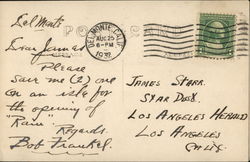 Del Monte
Dear James
Please
save me (2) one
on an isle for
the opening of
"Rain".
Regards.
Bob Frankel
POST CARD
DEL MONTE, CALIF.
AUG 25
6-PM
1932
JAMES STARR.
STAR DESK.
LOS ANGELES HERALD
LOS ANGELES
CALIF.